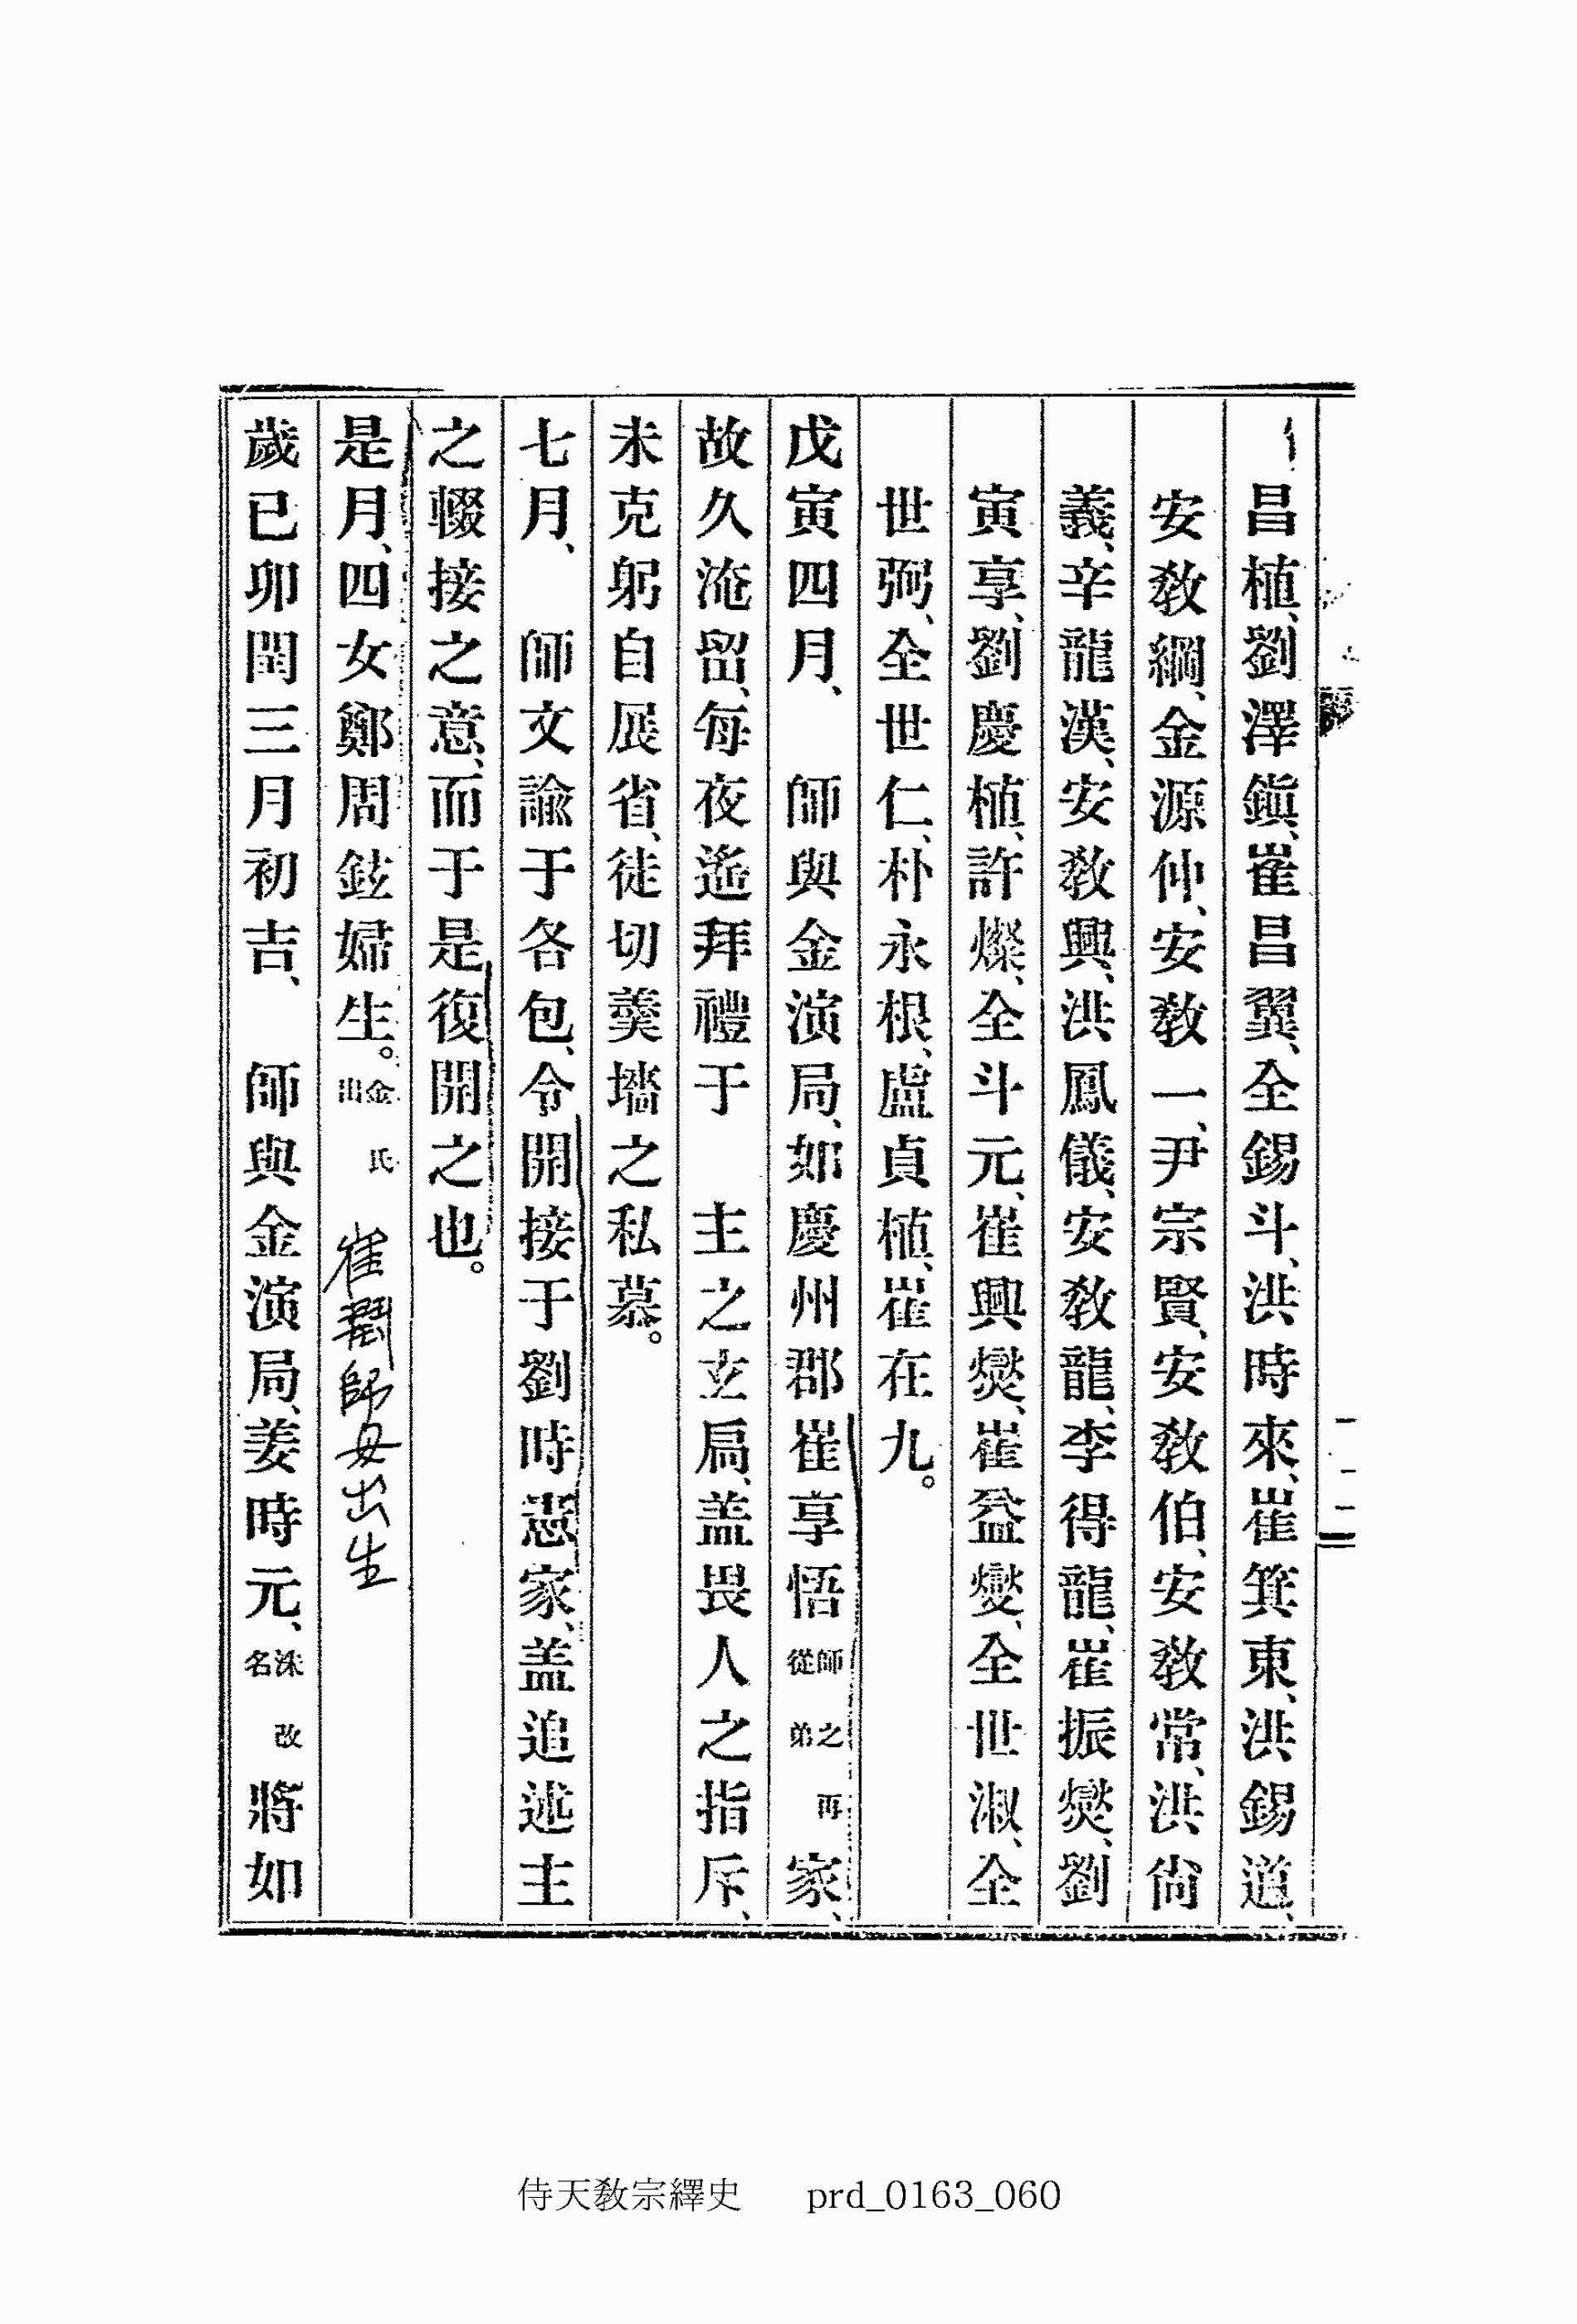 昌植、劉澤鎭、崔昌翼、全錫斗、洪時來、崔箕東、洪錫道、
安敎綱、金源仲、安敎一、尹宗賢、安敎伯、安敎常、洪尙
義、辛龍漢、安敎興、洪鳳儀、安敎龍、李得龍、崔振爕、劉
寅享、劉慶植、許燦、全斗元、崔興爕、崔益爕、全世淑、全
世弼、全世仁、朴永根、盧貞植、崔在九。
戊寅四月、 師與金演局、如慶州郡崔享悟師之再從弟家、
故久淹留、每夜遙拜禮于 主之玄扃、盖畏人之指斥、
未克躬自展省、徒切羹墻之私慕。
七月、 師文諭于各包、令開接于劉時憲家、盖追述主
之輟接之意、而于是復開之也。
是月、四女鄭周鉉婦生。金氏出 崔 師母出生
歲己卯閏三月初吉、 師與金演局、姜時元、洙改名將如
侍天敎宗繹史 prd_0163_060